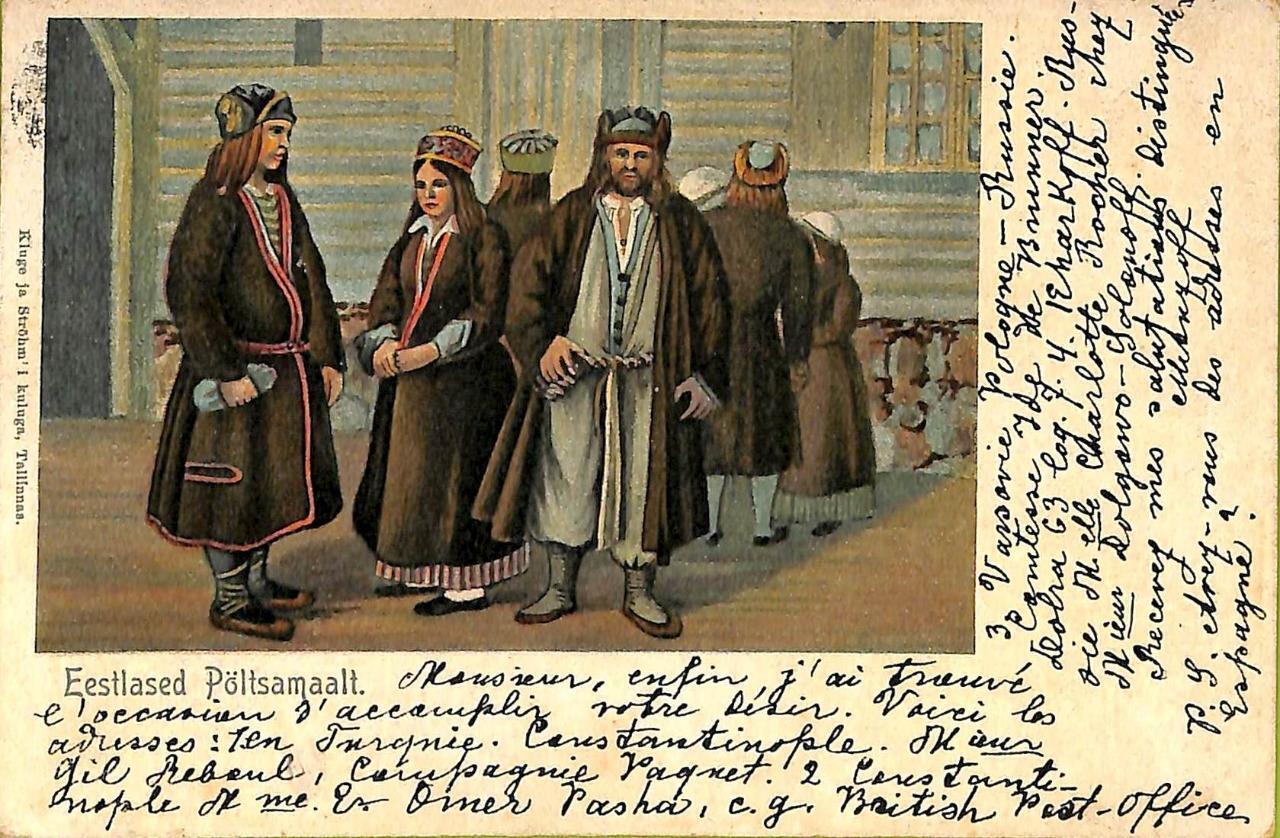 Kluge ja Ströhm'i kuluga, Tallinnas.
Eestlased Pöltsamaalt.
Monsieur, enfin j'ai trouvé
l'occasion d'accomplir votre désir. Voici les
adresses: 1 en Turquie. Constantinople. Mieur
Gil Reboul, Compagnie Paquet. 2 Constanti-
nople Mme. Er Omer Pasha, c. g. British Post-Office
3, Varsovie Pologne - Russie.
Comtesse Yde de Brunner
Dobra 63 log. 7. 4, Kharkoff. Rus-
sie Melle Charlotte Rocher chez
Mieur Dolgowo-Solonoff
Recevez mes salutations distinguées
P. S. Avez-vous des adresses en
Espagne?